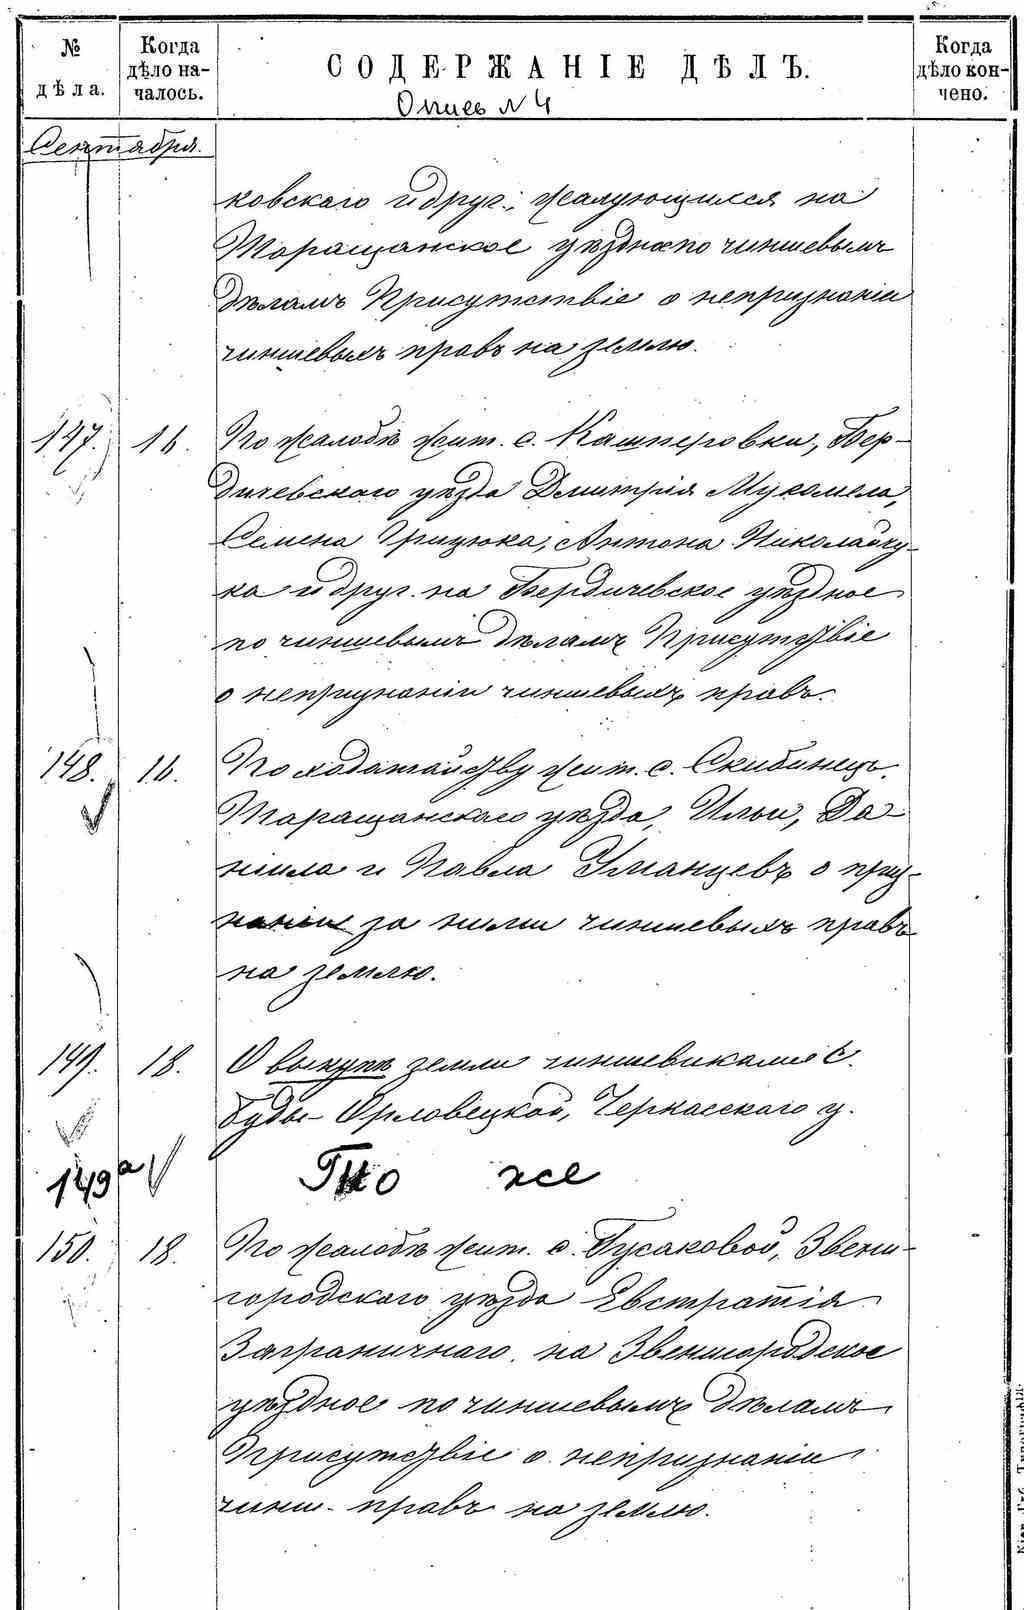 № дѣла.
Когда дѣло началось.
СОДЕРЖАНІЕ ДѢЛЪ.
Когда дѣло кончено.
Опись № 4
Сентября.
ковскаго и друг., жалующимся на
Таращанское уѣздное по чиншевымъ
дѣламъ Присутствіе о непризнаніи
чиншевыхъ правъ на землю.
147. 16. По жалобѣ жит. с. Кашперовки, Бер-
дичевскаго уѣзда Дмитрія Мукомела,
Семена Грицюка, Антона Николайчу-
ка и друг. на Бердичевское уѣздное
по чиншевымъ дѣламъ Присутствіе
о непризнаніи чиншевыхъ правъ.
148. 16. По ходатайству жит. с. Скибинецъ,
Таращанскаго уѣзда, Ильи, Да-
ніила и Павла Уманцевъ о приз-
наніи за ними чиншевыхъ правъ
на землю.
149. 18. О выкупѣ земли чиншевиками с.
Буды-Орловецкой, Черкасскаго у.
149а То же
150. 18. По жалобѣ жит. с. Гусаковой, Звени-
городскаго уѣзда Евстратія
Заграничнаго на Звенигородское
уѣздное по чиншевымъ дѣламъ
Присутствіе о непризнаніи
чинш. правъ на землю.